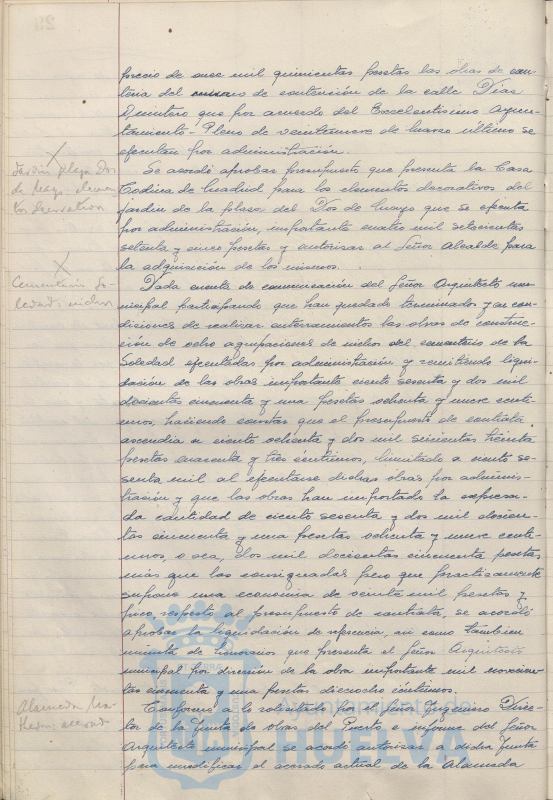 precio de once mil quinientas pesetas las obras de can-
tería del muro de contención de la calle Dias
Quintero que por acuerdo del Excelentísimo Ayun-
tamiento-Pleno de veintinueve de marzo último se
ejecutan por administración.
Jardin plaza Dos
de Mayo elemen-
tos decorativos
Se acordó aprobar presupuesto que presenta la Casa
Codina de Madrid para los elementos decorativos del
jardin de la plaza del Dos de Mayo que se ejecuta
por administración, importante cuatro mil setecientas
setenta y cinco pesetas y autorizar al Señor Alcalde para
la adquisición de los mismos.
Cementerio So-
ledad: nichos
Dada cuenta de comunicación del Señor Arquitecto mu-
nicipal participando que han quedado terminados y en con-
diciones de realizar enterramientos las obras de construc-
ción de ocho agrupaciones de nichos del cementerio de la
Soledad ejecutadas por administración y remitiendo liqui-
dación de las obras importante ciento sesenta y dos mil
doscientas cincuenta y una pesetas ochenta y nueve centi-
mos, haciendo constar que el presupuesto de contrata
ascendia a ciento ochenta y dos mil seiscientas treinta
pesetas cuarenta y tres céntimos, limitado a ciento se-
senta mil al efectuarse dichas obras por adminis-
tración y que las obras han importado la expresa-
da cantidad de ciento sesenta y dos mil doscien-
tas cincuenta y una pesetas ochenta y nueve centi-
mos, o sea, dos mil doscientas cincuenta pesetas
más que las consignadas pero que practicamente
supone una economia de veinte mil pesetas y
pico respecto al presupuesto de contrata, se acordó
aprobar la liquidación de referencia, asi como tambien
minuta de honorarios que presenta el Señor Arquitecto
municipal por dirección de la obra importante mil novecien-
tas cincuenta y una pesetas dieciocho centimos.
Alameda Sun-
dheim: acerado
Conforme a lo solicitado por el Señor Ingeniero Direc-
tor de la Junta de Obras del Puerto e informe del Señor
Arquitecto municipal se acordó autorizar a dicha Junta
para modificar el acerado actual de la Alameda
Ayuntamiento de
HUELVA